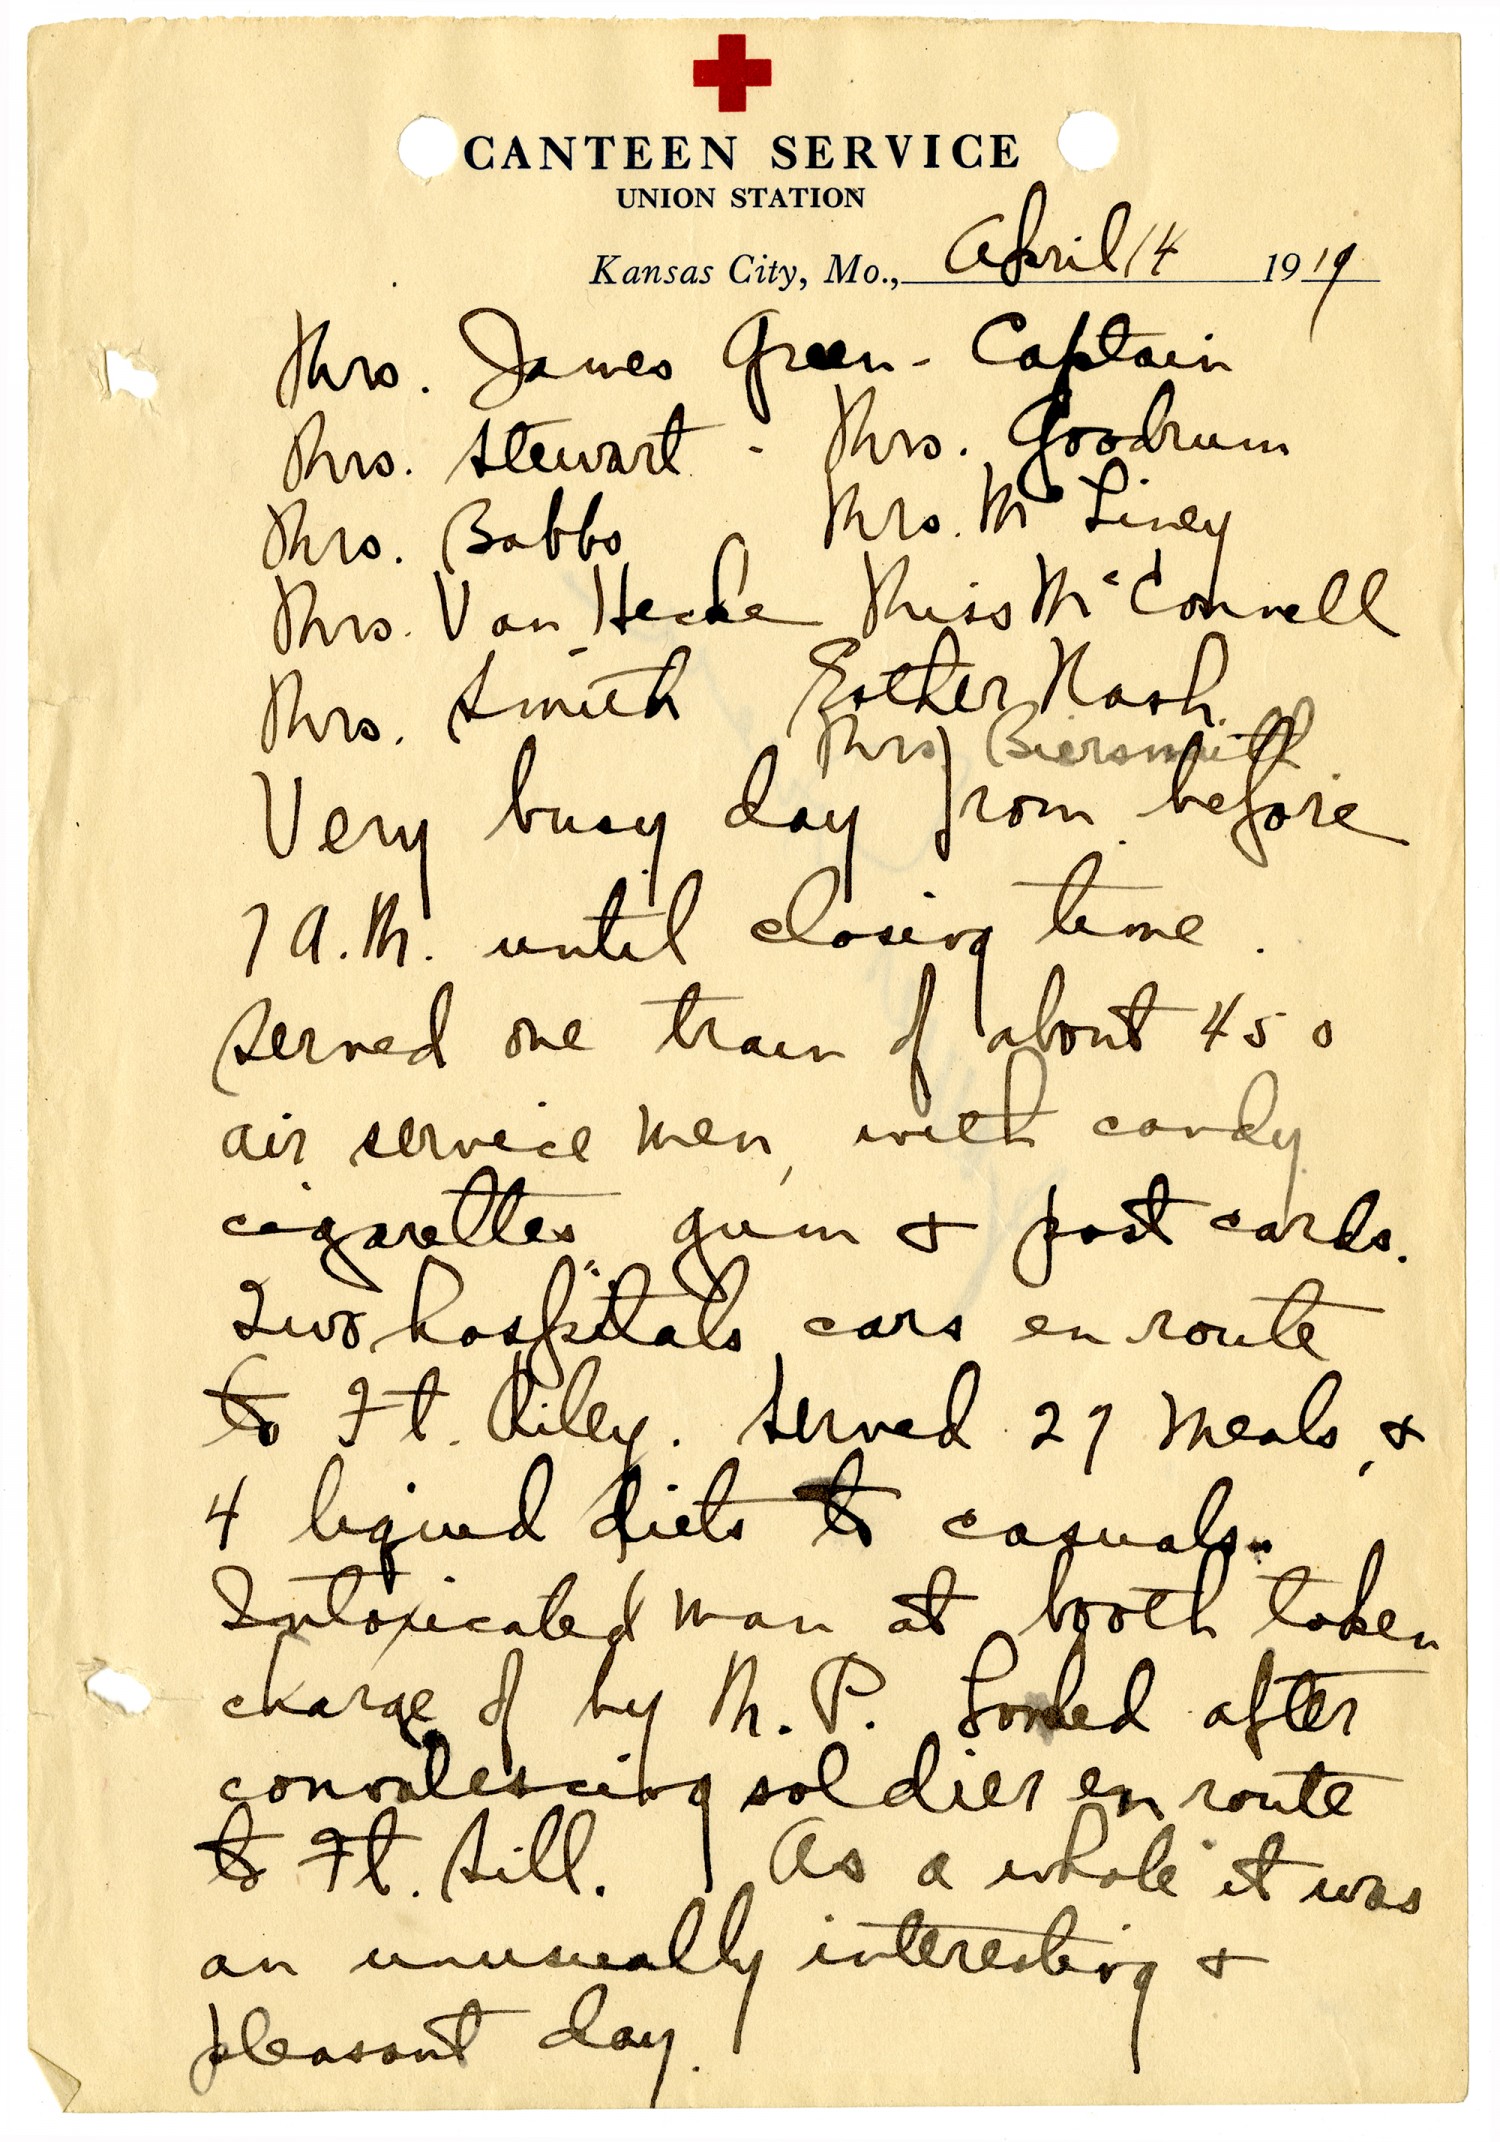 CANTEEN SERVICE
UNION STATION
Kansas City, Mo., April 14 1919
Mrs. James Green - Captain
Mrs. Stewart - Mrs. Goodrum
Mrs. Babbs Mrs. Mc Liney
Mrs. Van Hecke Miss McConnell
Mrs. Smith Esther Nash.
Mrs. Biersmith.
Very busy day from before
7 A.M. until closing time.
Served one train of about 450
air service men, with candy
cigarettes, gum & post cards.
Two hospitals cars en route
to Ft. Riley. Served 27 meals, &
4 liquid diets to casuals.
Intoxicated man at booth taken
charge of by M. P. Looked after
convalescing soldier en route
to Ft. Sill. As a whole it was
an unusually interesting &
pleasant day.